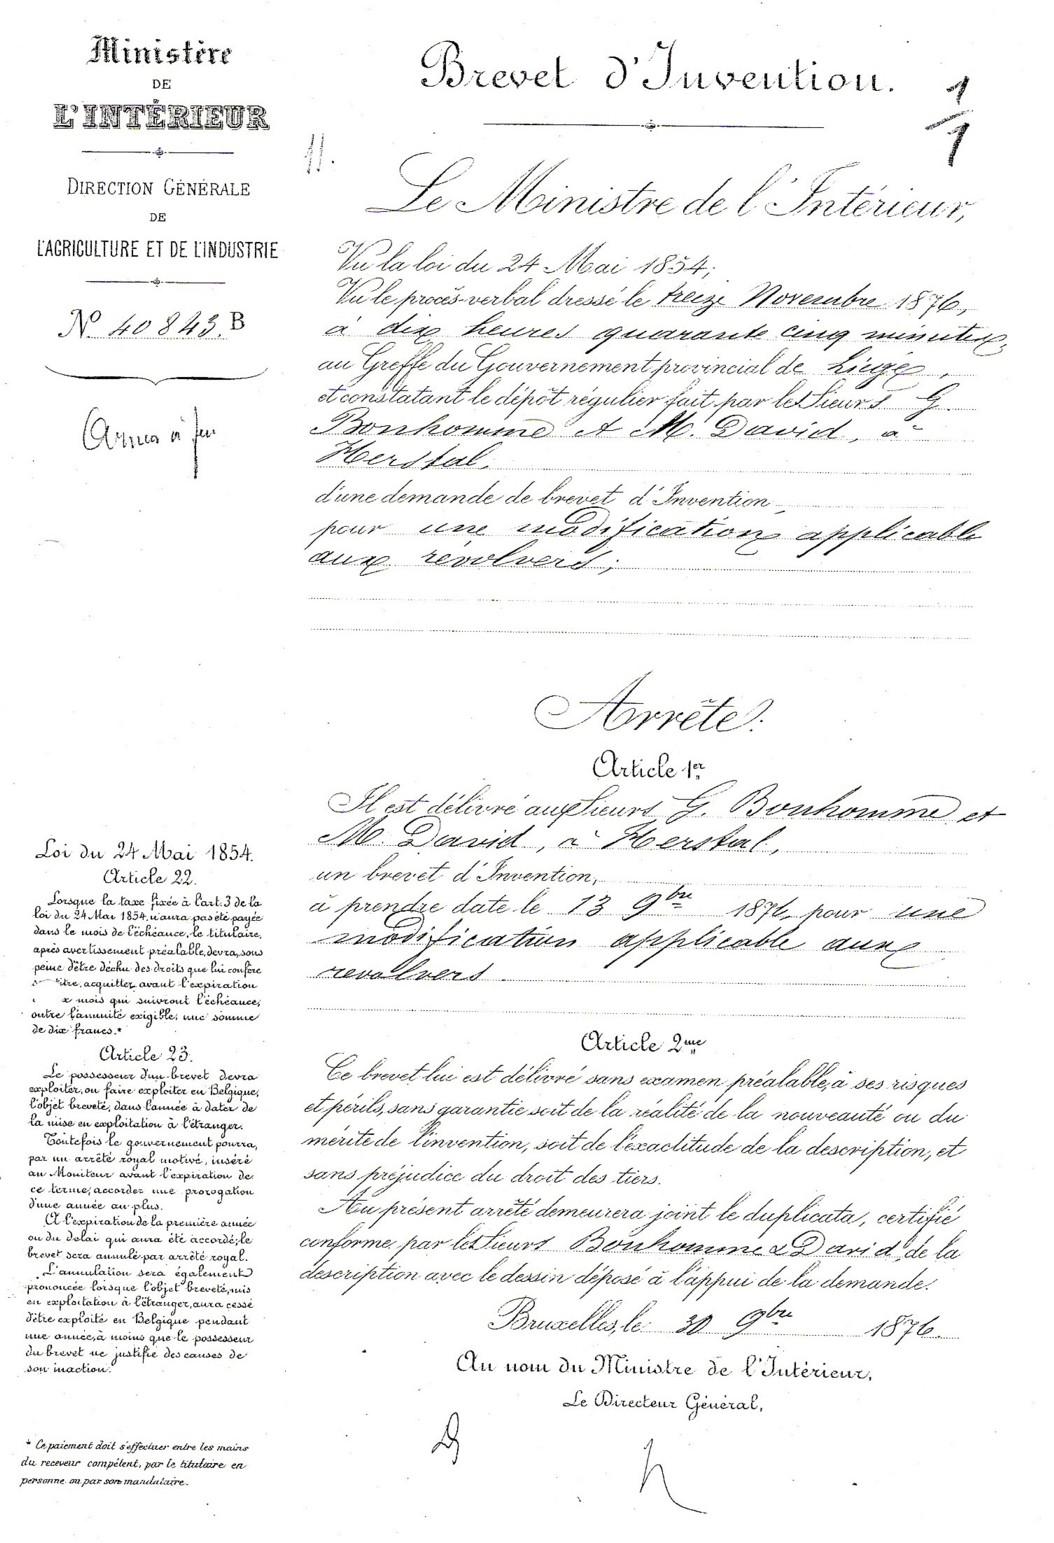 Ministère
DE
L'INTÉRIEUR
DIRECTION GÉNÉRALE
DE
L'AGRICULTURE ET DE L'INDUSTRIE
No 40843.B
Armes à feu
Brevet d'Invention.
1/1
Le Ministre de l'Intérieur,
Vu la loi du 24 Mai 1854;
Vu le procès-verbal dressé le treize Novembre 1876,
à dix heures quarante cinq minutes,
au Greffe du Gouvernement provincial de Liège,
et constatant le dépôt régulier fait par les Sieurs G.
Bonhomme et M. David, à
Herstal,
d'une demande de brevet d'Invention
pour une modification applicable
aux révolvers;
Arrête:
Article 1er
Il est délivré aux Sieurs G. Bonhomme et
M. David, à Herstal,
un brevet d'Invention,
à prendre date le 13 9bre 1876, pour une
modification applicable aux
revolvers
Article 2me
Ce brevet lui est délivré sans examen préalable, à ses risques
et périls, sans garantie soit de la réalité de la nouveauté ou du
mérite de l'invention, soit de l'exactitude de la description, et
sans préjudice du droit des tiers.
Au présent arrêté demeurera joint le duplicata, certifié
conforme par les Sieurs Bonhomme & David de la
description avec le dessin déposé à l'appui de la demande.
Bruxelles, le 30 9bre 1876.
Au nom du Ministre de l'Intérieur,
Le Directeur Général,
Loi du 24 Mai 1854.
Article 22.
Lorsque la taxe fixée à l'art. 3 de la
loi du 24 Mai 1854, n'aura pas été payée
dans le mois de l'échéance, le titulaire,
après avertissement préalable, devra, sous
peine d'être déchu des droits que lui confère
titre, acquitter avant l'expiration
x mois qui suivront l'échéance,
outre l'annuité exigible, une somme
de dix francs.*
Article 23.
Le possesseur d'un brevet devra
exploiter, ou faire exploiter en Belgique,
l'objet breveté, dans l'année à dater de
la mise en exploitation à l'étranger.
Toutefois le gouvernement pourra,
par un arrêté royal motivé, inséré
au Moniteur avant l'expiration de
ce terme, accorder une prorogation
d'une année au plus.
A l'expiration de la première année
ou du délai qui aura été accordé, le
brevet sera annulé par arrêté royal.
L'annulation sera également
prononcée lorsque l'objet breveté, mis
en exploitation à l'étranger, aura cessé
d'être exploité en Belgique pendant
une année, à moins que le possesseur
du brevet ne justifie des causes de
son inaction.
* Ce paiement doit s'effectuer entre les mains
du receveur compétent, par le titulaire en
personne ou par son mandataire.